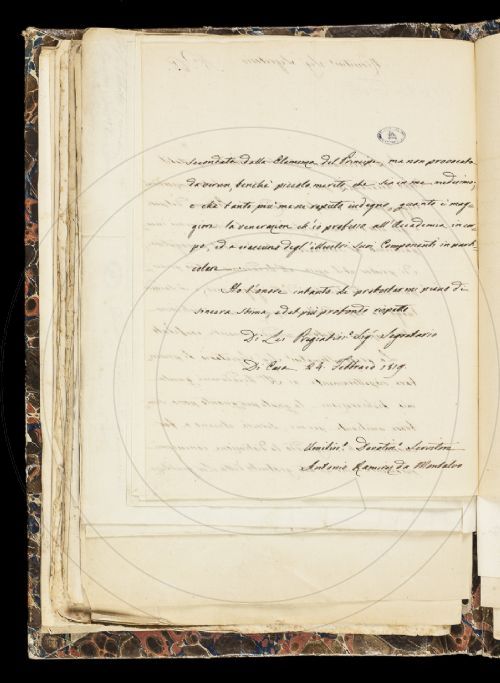 secondata dalla Clemenza del Principe, ma non provocata
da verun, benchè piccolo merito, che sia in me medesimo;
e che tanto più me ne reputo indegno, quanto è mag-
giore la venerazione ch'io professo all'Accademia in cor-
po, ed a ciascuno degl'illustri suoi Componenti in parti-
colare
Ho l'onore intanto di protestarmi pieno di
sincera stima, e del più profondo rispetto
Di Lei Pregiatiss.º Sig.r Segretario
Di Casa 24 Febbraio 1819.
Umiliss.º Devotiss.º Servitore
Antonio Ramirez da Montalvo